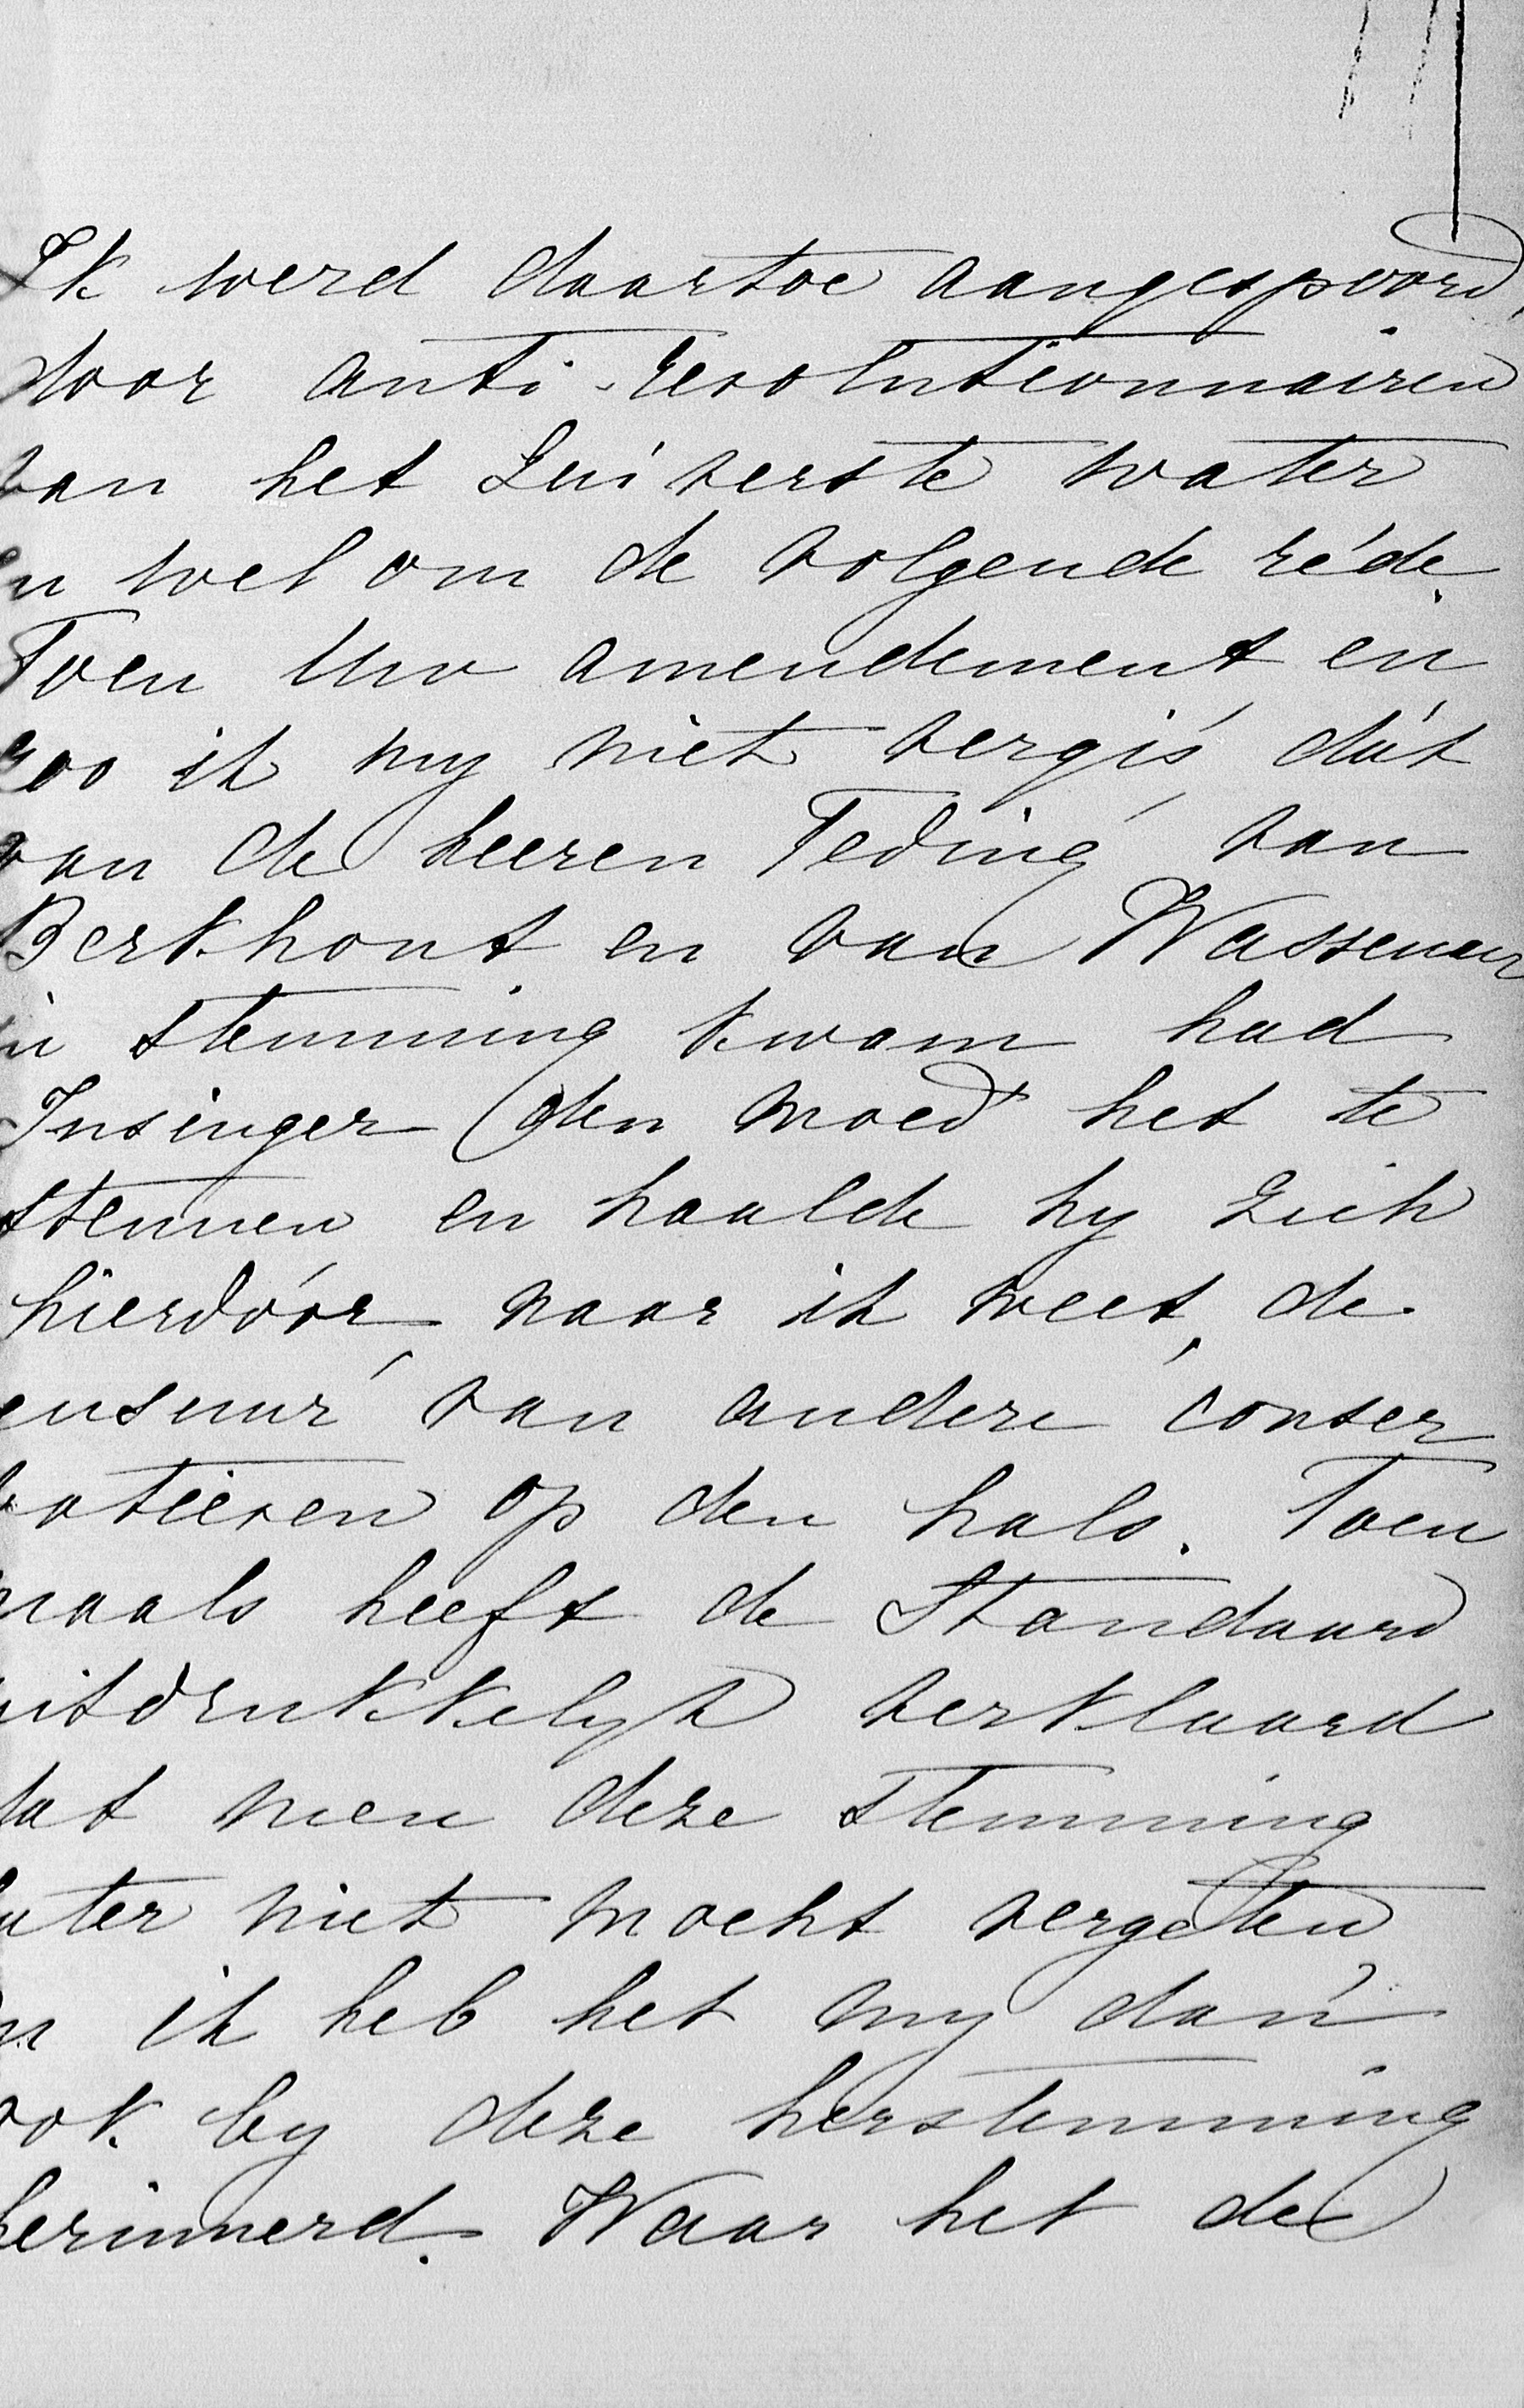 Ik werd daartoe aangespoord,
door anti-revolutionnairen
van het zuiverste water
en wel om de volgende réde.
Toen Uw amendement en
zoo ik my niet vergis dát
van de heeren Teding van
Berkhout en van Wassenaer
in stemming kwam had
Insinger den moed het te
stemmen en haalde hy zich
hierdóor naar ik weet, de
ensuur van andere conser
vatieven op den hals. Toen
maals heeft de Standaard
uitdrukkelyk verklaard
dat men deze stemming
later niet mocht vergeten
en ik heb het my dan
ook by deze herstemming
herinnerd. Waar het de